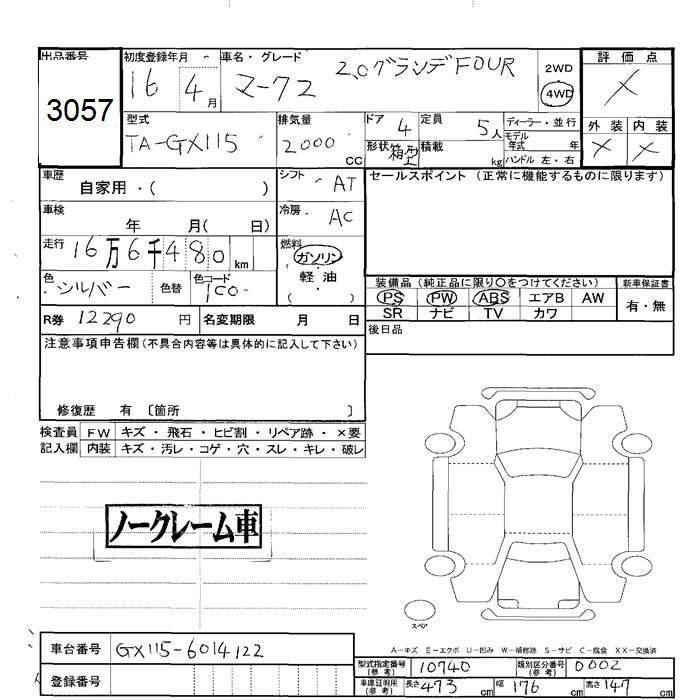 出品番号
3057
初度登録年月
16 4月
車名・グレード
マーク2 2.0グランデFOUR
2WD
4WD
評価点
×
外装 内装
× ×
型式
TA-GX115
排気量
2000 cc
ドア 4
定員 5人
形状 箱型
積載 kg
ディーラー・並行
モデル年式 年
ハンドル 左・右
車歴
自家用・( )
シフト AT
セールスポイント (正常に機能するものに限ります)
車検
年 月( 日)
冷房 AC
走行 16万6千480 km
燃料
ガソリン
軽油
( )
色 シルバー 色替
色コード 1C0
装備品 (純正品に限り〇をつけてください)
新車保証書
PS PW ABS エアB AW
SR ナビ TV カワ
有・無
R券 12290 円
名変期限 月 日
後日品
注意事項申告欄 (不具合内容等は具体的に記入して下さい)
修復歴 有 〔箇所 〕
検査員記入欄
FW キズ・飛石・ヒビ割・リペア跡・×要
内装 キズ・汚レ・コゲ・穴・スレ・キレ・破レ
ノークレーム車
スペア
A-キズ E-エクボ U-凹み W-補修跡 S-サビ C-腐食 XX-交換済
車台番号 GX115-6014122
登録番号
型式指定番号(参考) 10740
類別区分番号(参考) 0002
車庫証明用(参考) 長さ 473 cm 幅 176 cm 高さ 147 cm